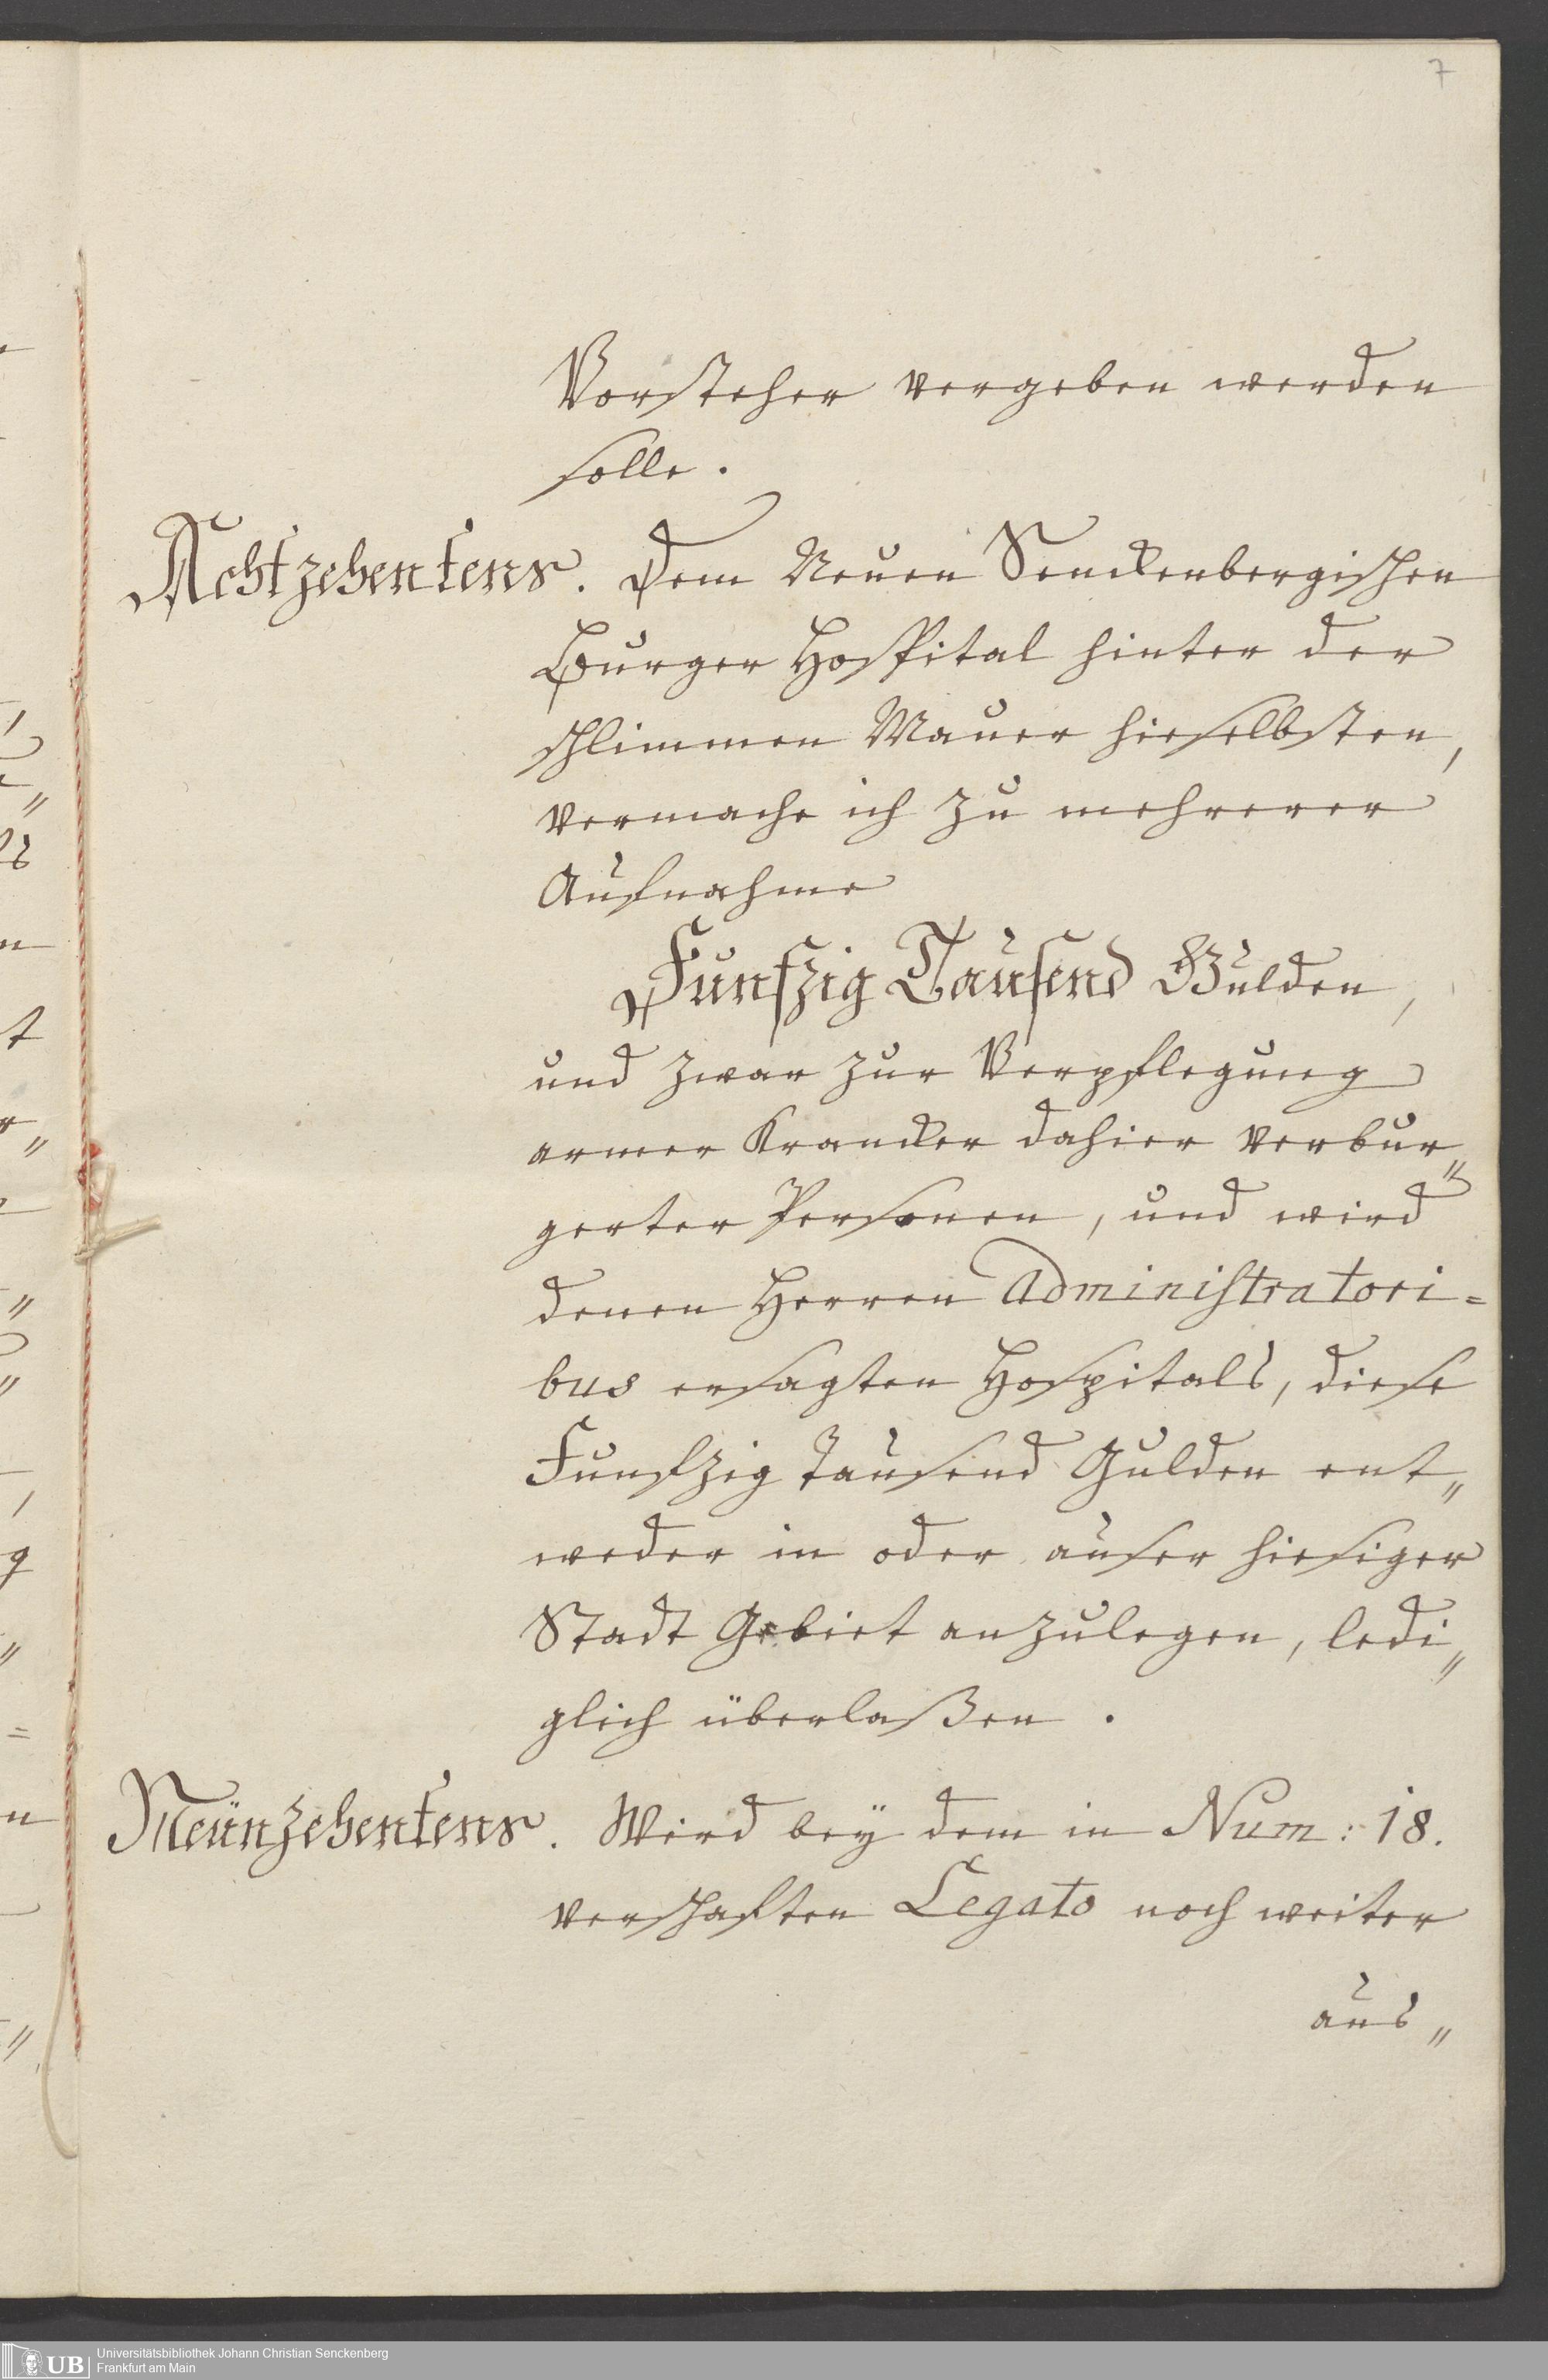 7
Vorsteher vergeben werden
solle.
Achtzehentens. Dem Neuen Senckenbergischen
Burger Hospital hinter der
schlimmen Mauer hieselbsten,
vermache ich zu mehrerer
Aufnahme
Funfzig Tausend Gulden,
und zwar zur Verpflegung
armer Krancker dahier verbur„
gerter Personen, und wird
denen Herren Administratori=
bus ersagten Hospitals, diese
Funfzig Tausend Gulden ent„
weder in oder auser hiesiger
Stadt Gebiet anzulegen, ledi„
glich überlaßen.
Neünzehentens. Wird beÿ dem in Num: 18.
verschaften Legato noch weiter
aus„
UB Universitätsbibliothek Johann Christian Senckenberg
Frankfurt am Main